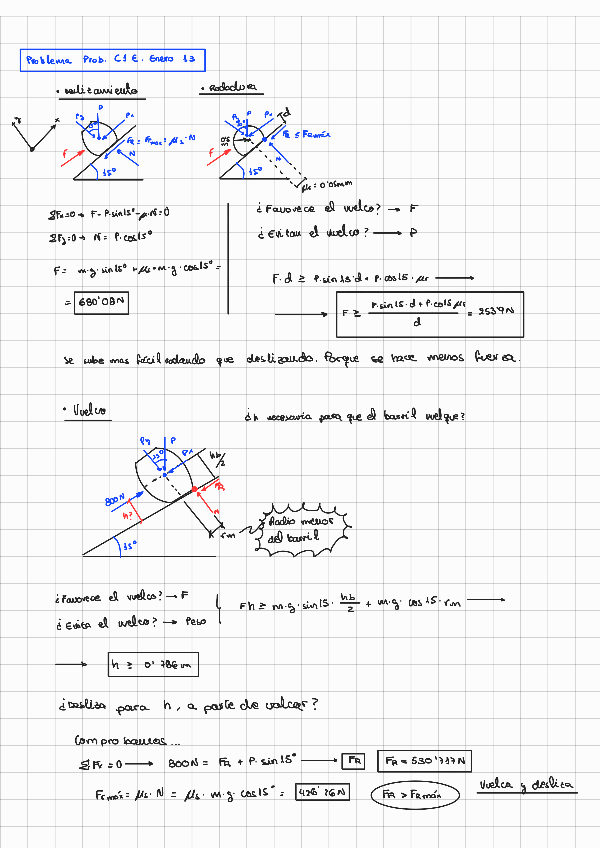 Problema Prob. C1 E. Enero 13
• Deslizamiento
• Rodadura
y x
Py P Px
15°
FR = Frmax = μs · N
F
N
15°
Py P Px d
15°
FR ≤ FRmáx
F
N
15°
μr = 0'05mm
ΣFx=0 → F - P·sin15° - μ·N = 0
ΣFy=0 → N = P·cos15°
F = m·g·sin15° + μs·m·g·cos15° =
= 680'08N
¿Favorece el vuelco? → F
¿Evitan el vuelco? → P
F·d ≥ P·sin15·d + P·cos15·μr →
→ F ≥ P·sin15·d + P·cos15·μr / d = 253'9N
Se sube mas fácil rodando que deslizando. Porque se hace menos fuerza.
• Vuelco
¿h necesaria para que el barril vuelque?
Py P Px
15°
hb/2
800N
h?
FR
N
rm
15°
Radio menor
del barril
¿Favorece el vuelco? → F
¿Evita el vuelco? → Peso
F·h ≥ m·g·sin15 · hb/2 + m·g·cos15·rm →
→ h ≥ 0'786m
¿Desliza para h, a parte de volcar?
Comprobamos...
ΣFx = 0 → 800N = FR + P·sin15° → FR FR = 530'737N
FRmáx = μs · N = μs · m·g·cos15° = 426'76N FR > FRmáx Vuelca y desliza